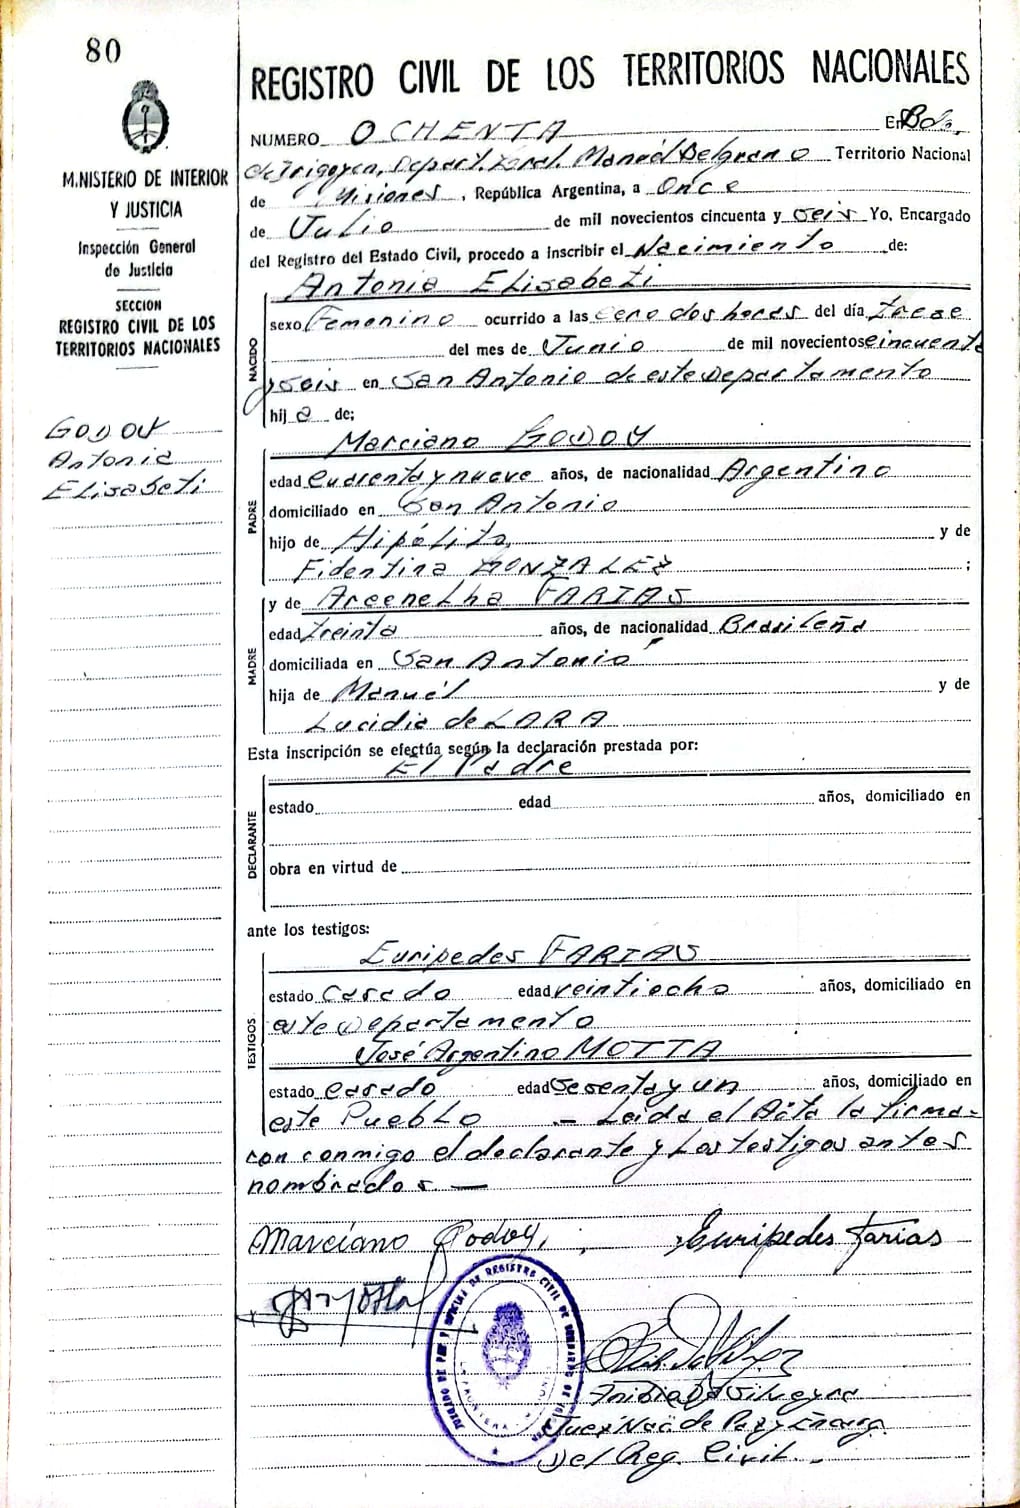 80
REGISTRO CIVIL DE LOS TERRITORIOS NACIONALES
NUMERO OCHENTA En Bdo.
de Irigoyen, Depart. Gral. Manuel Belgrano Territorio Nacional
de Misiones, República Argentina, a Once
de Julio de mil novecientos cincuenta y seis Yo, Encargado
del Registro del Estado Civil, procedo a inscribir el Nacimiento de:
M.NISTERIO DE INTERIOR
Y JUSTICIA
Inspección General
de Justicia
SECCION
REGISTRO CIVIL DE LOS
TERRITORIOS NACIONALES
GODOY
Antonia
Elisabeti
NACIDO
Antonia Elisabeti
sexo Femenino ocurrido a las cero dos horas del día trece
del mes de Junio de mil novecientos cincuenta
y seis en San Antonio de este Departamento
hija de:
PADRE
Marciano GODOY
edad cuarenta y nueve años, de nacionalidad Argentino
domiciliado en San Antonio
hijo de Hipólito y de
Fidentina MONZALEZ ;
MADRE
y de FARIAS
edad treinta años, de nacionalidad Brasileña
domiciliada en San Antonio
hija de Manuél y de
Lucidia de LARA
Esta inscripción se efectúa según la declaración prestada por:
El Padre
DECLARANTE
estado edad años, domiciliado en
obra en virtud de
ante los testigos:
TESTIGOS
Euripedes FARIAS
estado casado edad veintiocho años, domiciliado en
este Departamento
José Argentino MOTTA
estado casado edad sesenta y un años, domiciliado en
este Pueblo — Leida el Acta la firma-
ron conmigo el declarante y los testigos antes
nombrados —
Marciano Godoy, Eurípedes Farias
JUZGADO DE PAZ Y OFICINA DE REGISTRO CIVIL DE BERNARDO DE IRIGOYEN
Juez Nac. de Paz y Encarg.
Del Reg. Civil.-